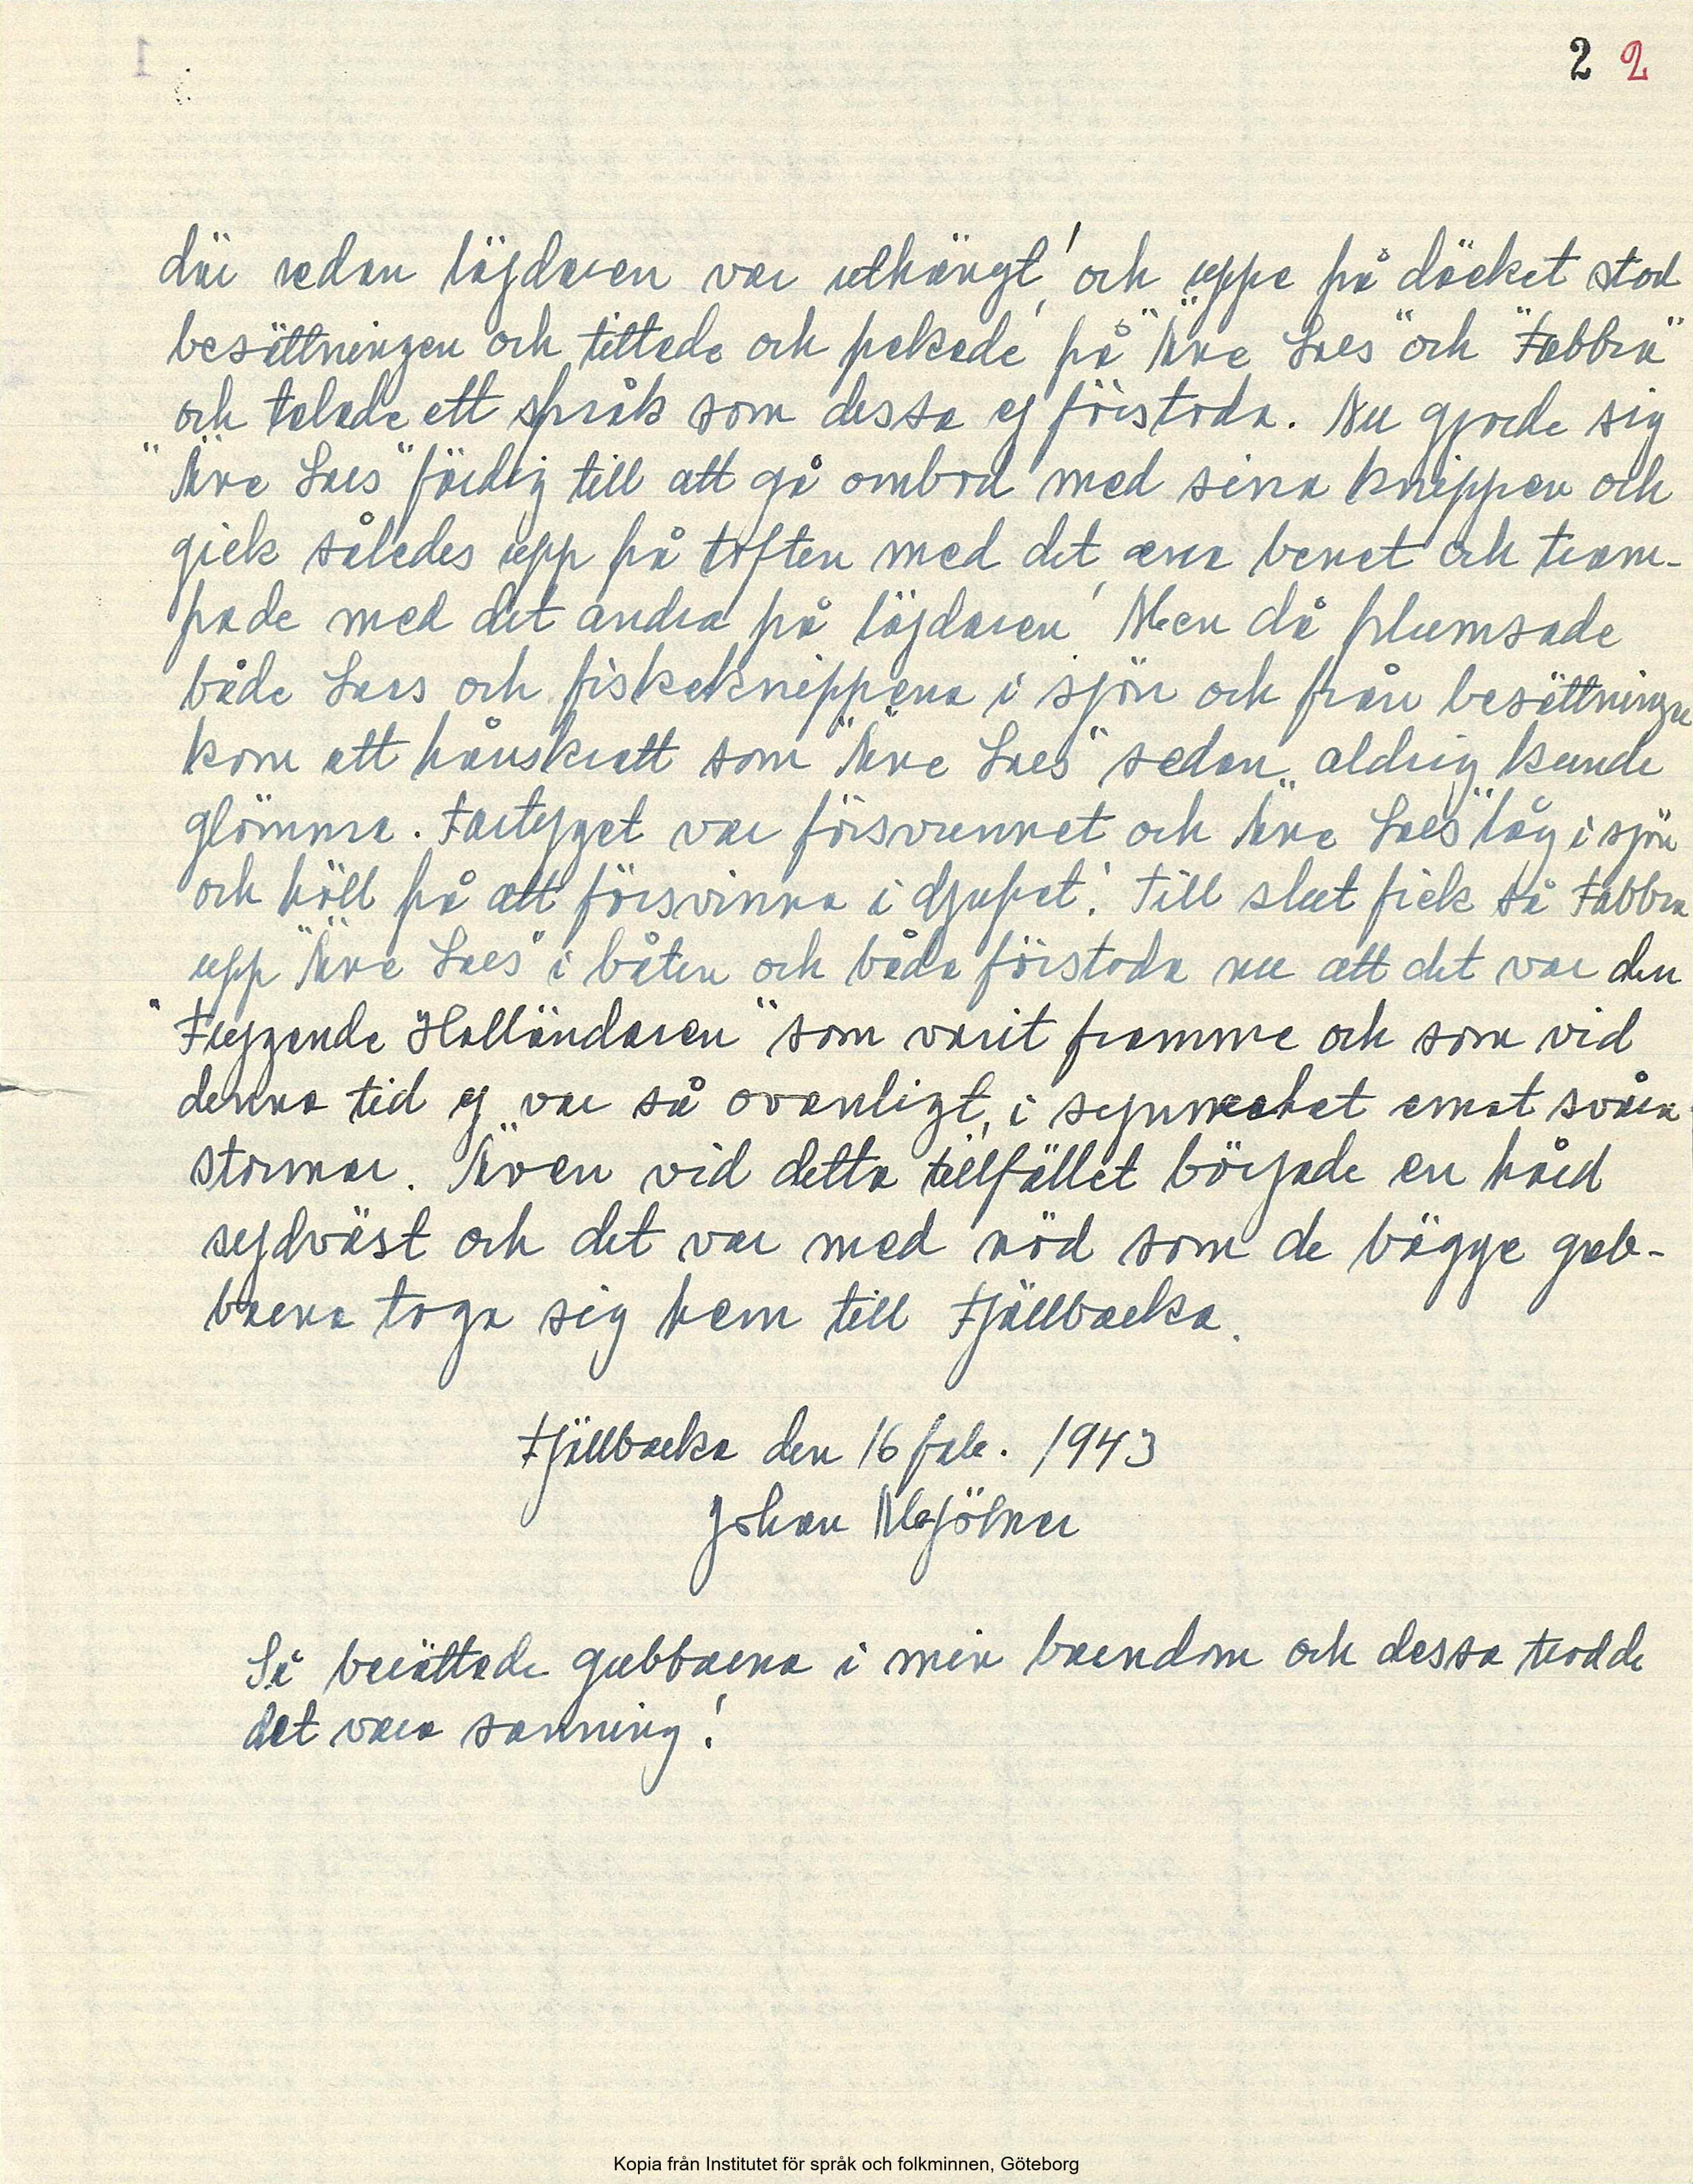 2 2
där redan läjdaren var uthängt! och uppe på däcket stod
besättningen och tittade och pekade på "Äne Lars" och "Fabbra"
och talade ett språk som dessa ej förstoda. Nu gjorde sig
"Äne Lars" färdig till att gå ombord med sina knippen och
gick således upp på toften med det ena benet och tram-
pade med det andra på läjdaren! Men då plumsade
både Lars och fiskeknippena i sjön och från besättningen
kom ett hånskratt som "Äne Lars" sedan aldrig kunde
glömma. Fartyget var försvunnet och "Äne Lars" låg i sjön
och höll på att försvinna i djupet! Till slut fick så Fabbra
upp "Äne Lars" i båten och båda förstoda nu att det var den
"Flygande Holländaren" som varit framme och som vid
denna tid ej var så ovanligt, i synnerhet emot svåra
stormar. Även vid detta tillfället började en hård
sydväst och det var med nöd som de bägge gub-
barna toga sig hem till Fjällbacka.
Fjällbacka den 16 feb. 1943
Johan Mjölner
Så berättade gubbarna i min barndom och dessa trodde
det vara sanning!
Kopia från Institutet för språk och folkminnen, Göteborg